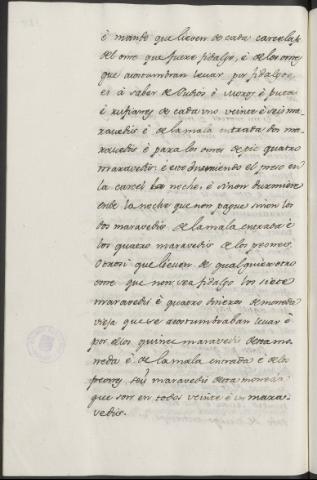 è mando que lieven de cada carcelaje
del ome que fuere fidalgo, è de los omes
que acostumbran levar por fidalgos,
es à saber de Judios è Moros è puta
è rufianes de cada uno veinte è seis ma-
ravedis è de la mala entrada dos ma-
ravedis è para los omes de pie quatro
maravedis, è esto durmiendo el preso en
la carcel la noche, è si non durmiere
ende la noche que non pague sinon los
dos maravedis de la mala entrada è
los quatro maravedis de los peones.
Otrosi que lieven de qualquier otro
ome que non sea fidalgo los siete
maravedis è quatro dineros de moneda
vieja que se acostumbraban levar è
por ellos quince maravedis desta mo-
neda è de la mala entrada è de los
peones, seis maravedis desta moneda
que son en todos veinte è un mara-
vedis.